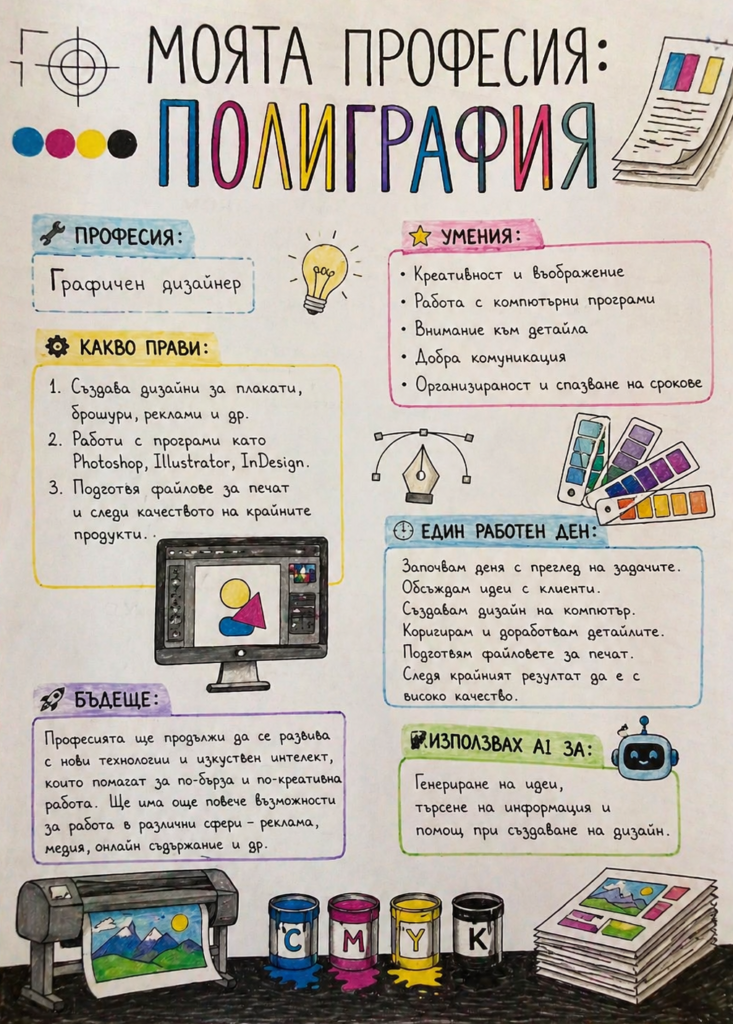 МОЯТА ПРОФЕСИЯ:
ПОЛИГРАФИЯ
ПРОФЕСИЯ:
Графичен дизайнер
КАКВО ПРАВИ:
1. Създава дизайни за плакати,
брошури, реклами и др.
2. Работи с програми като
Photoshop, Illustrator, InDesign.
3. Подготвя файлове за печат
и следи качеството на крайните
продукти. .
БЪДЕЩЕ:
Професията ще продължи да се развива
с нови технологии и изкуствен интелект,
които помагат за по-бърза и по-креативна
работа. Ще има още повече възможности
за работа в различни сфери – реклама,
медия, онлайн съдържание и др.
УМЕНИЯ:
• Креативност и въображение
• Работа с компютърни програми
• Внимание към детайла
• Добра комуникация
• Организираност и спазване на срокове
ЕДИН РАБОТЕН ДЕН:
Започвам деня с преглед на задачите.
Обсъждам идеи с клиенти.
Създавам дизайн на компютър.
Коригирам и доработвам детайлите.
Подготвям файловете за печат.
Следя крайният резултат да е с
високо качество.
ИЗПОЛЗВАХ AI ЗА:
Генериране на идеи,
търсене на информация и
помощ при създаване на дизайн.
C M Y K